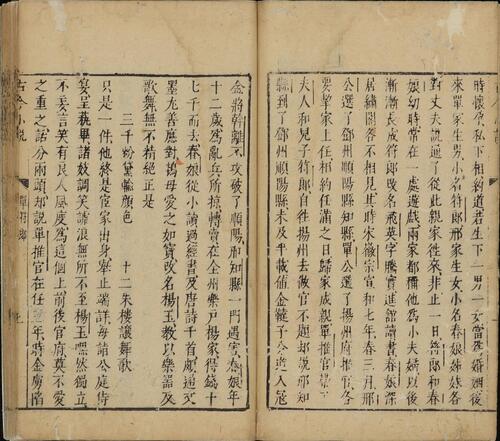 時懷孕私下相約道若生下一男一女當爲婚姻後
來單家生男小名符郎邢家生女小名春娘姊妹各
對丈夫説通了從此親家往來非止一日符郎和春
娘幼時常在一處遊戲兩家都稱他爲小夫婦以後
漸漸長成符郎改名飛英字騰實進館讀書春娘深
居繡閣各不相見其時宋徽宗宣和七年春三月邢
公選了鄧州順陽縣知縣單公選了揚州府推官各
要挈家上任相約任滿之日歸家成親單推官帶了
夫人和兒子符郎自往揚州去做官不題却説邢知
縣到了鄧州順陽縣未及半載値金韃子分道入寇
金將斡離不攻破了順陽邢知縣一門遇害春娘年
十二歲爲亂兵所掠轉賣在全州樂戸楊家得錢十
七千而去春娘從小讀過經書及唐詩千首頗通文
墨尤善應對鴇母愛之如寶改名楊玉教以樂器及
歌舞無不精絶正是
三千粉黛輸顔色　十二朱樓讓舞歌
只是一件他終是宦家出身舉止端詳每詣公庭侍
宴呈藝畢諸妓調笑謔浪無所不至楊玉嘿然獨立
不妄言笑有良人風度爲這個上前後官府莫不愛
之重之話分兩頭却説單推官在任三年時金虜陷
古今小説　單符郎